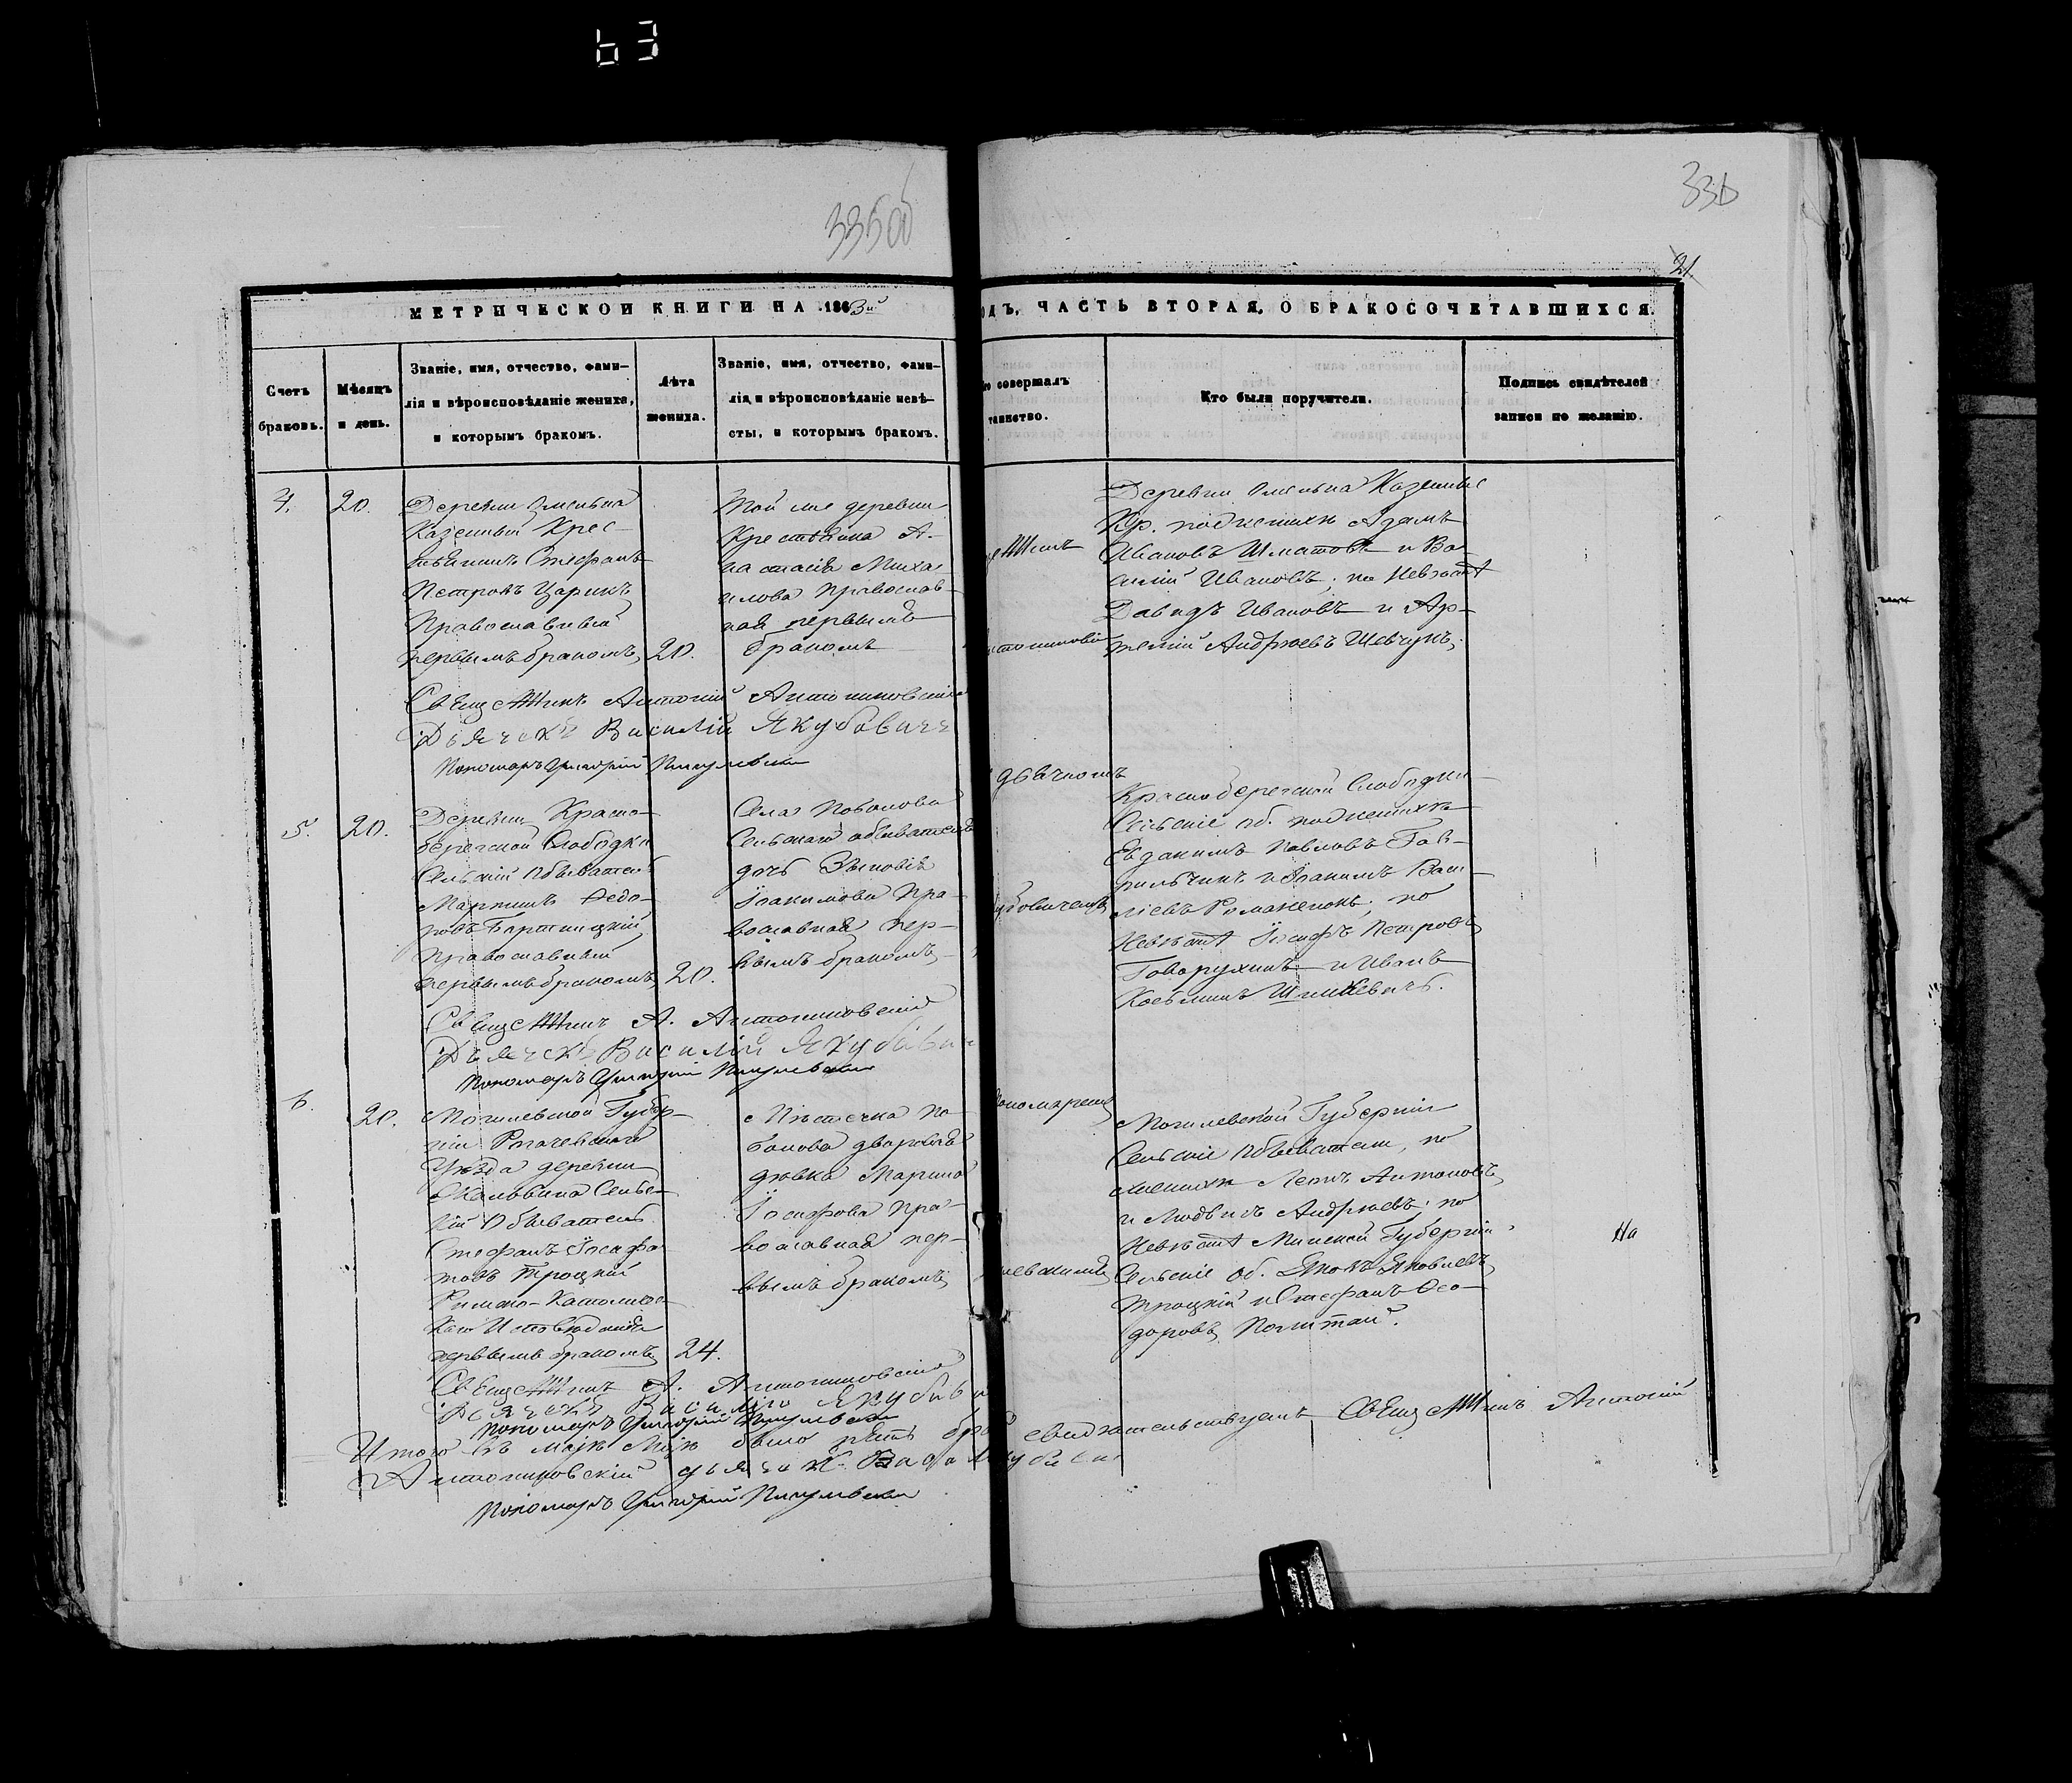 63
335об
336
21
МЕТРИЧЕСКОЙ КНИГИ НА 1863й
ОДЪ, ЧАСТЬ ВТОРАЯ, О БРАКОСОЧЕТАВШИХСЯ.
Счетъ
браковъ.
Мѣсяцъ
и день.
Званіе, имя, отчество, фами-
лія и вѣроисповѣданіе жениха,
и которымъ бракомъ.
Лѣта
жениха.
Званіе, имя, отчество, фами-
лія, и вѣроисповѣданіе невѣ-
сты, и которымъ бракомъ.
то совершалъ
таинство.
Кто были поручители.
Подпись свидѣтелей
записи по желанію.
4.
20.
Деревни
Казенный Крес-
тьянинъ Стефанъ
Петровъ Царикъ
Православный
первымъ бракомъ
20.
Той же деревни
Крестьянка А-
настасія Миха-
илова Православ-
ная первымъ
бракомъ
Деревни Казенные
Кр. по женихѣ Адамъ
Ивановъ Шматовъ и Ва-
силій Ивановъ; по Невѣстѣ
Давидъ Ивановъ и Ар-
темій Андреевъ Шевчукъ.
Священникъ Антоній Антоновскій
Дьячекъ Василій Якубович
Пономарь Григорій
5.
20.
Деревни Красно-
берегской Слободки
Сельскій Обыватель
Мартинъ Ѳедо-
ровъ
Православный
первымъ бракомъ
20.
Села Поболова
Сельскаго обывателя
дочь Зѣновія
Іоакимова Пра-
вославная пер-
вымъ бракомъ
дьячкомъ
кубовичемъ
Краснoберегской Слободки
Сельскіе об. по женихѣ
Евдокимъ Павловъ Гав-
рильчикъ и Іоакимъ Васи-
ліевъ Романенокъ; по
Невѣстѣ Іосифъ Петровъ
Говорухинъ и Иванъ
Козьминъ
Священникъ А. Антоновскій
Дьячекъ Василій Якубови
Пономарь Григорій
6.
20.
Могилевской Губер-
ніи Рогачевскаго
Уѣзда деревни
Сельс-
кій Обыватель
Стефанъ Іосафа-
товъ Троцкій
Римско-Католичес-
каго Исповѣданія
первымъ бракомъ
24.
Мѣстечка По-
болова дворовая
дѣвка Марина
Іосифова Пра-
вославная пер-
вымъ бракомъ
пономаремъ
Могилевской Губерніи
Сельскіе Обыватели, по
женихѣ Леонъ Антоновъ
и Людвигъ Андреевъ; по
Невѣстѣ Минской Губерніи
Сельскіе Об. Яковъ Яковлевъ
Троцкій и Стефанъ Ѳео-
доровъ
На
Священникъ А. Антоновскій
Дьячекъ Василій Якубови
Пономарь Григорій
Итого въ маѣ мцѣ было пять бра свидѣтельствуемъ Священникъ Антоній
Антоновскій дьячек
Пономарь Григорій